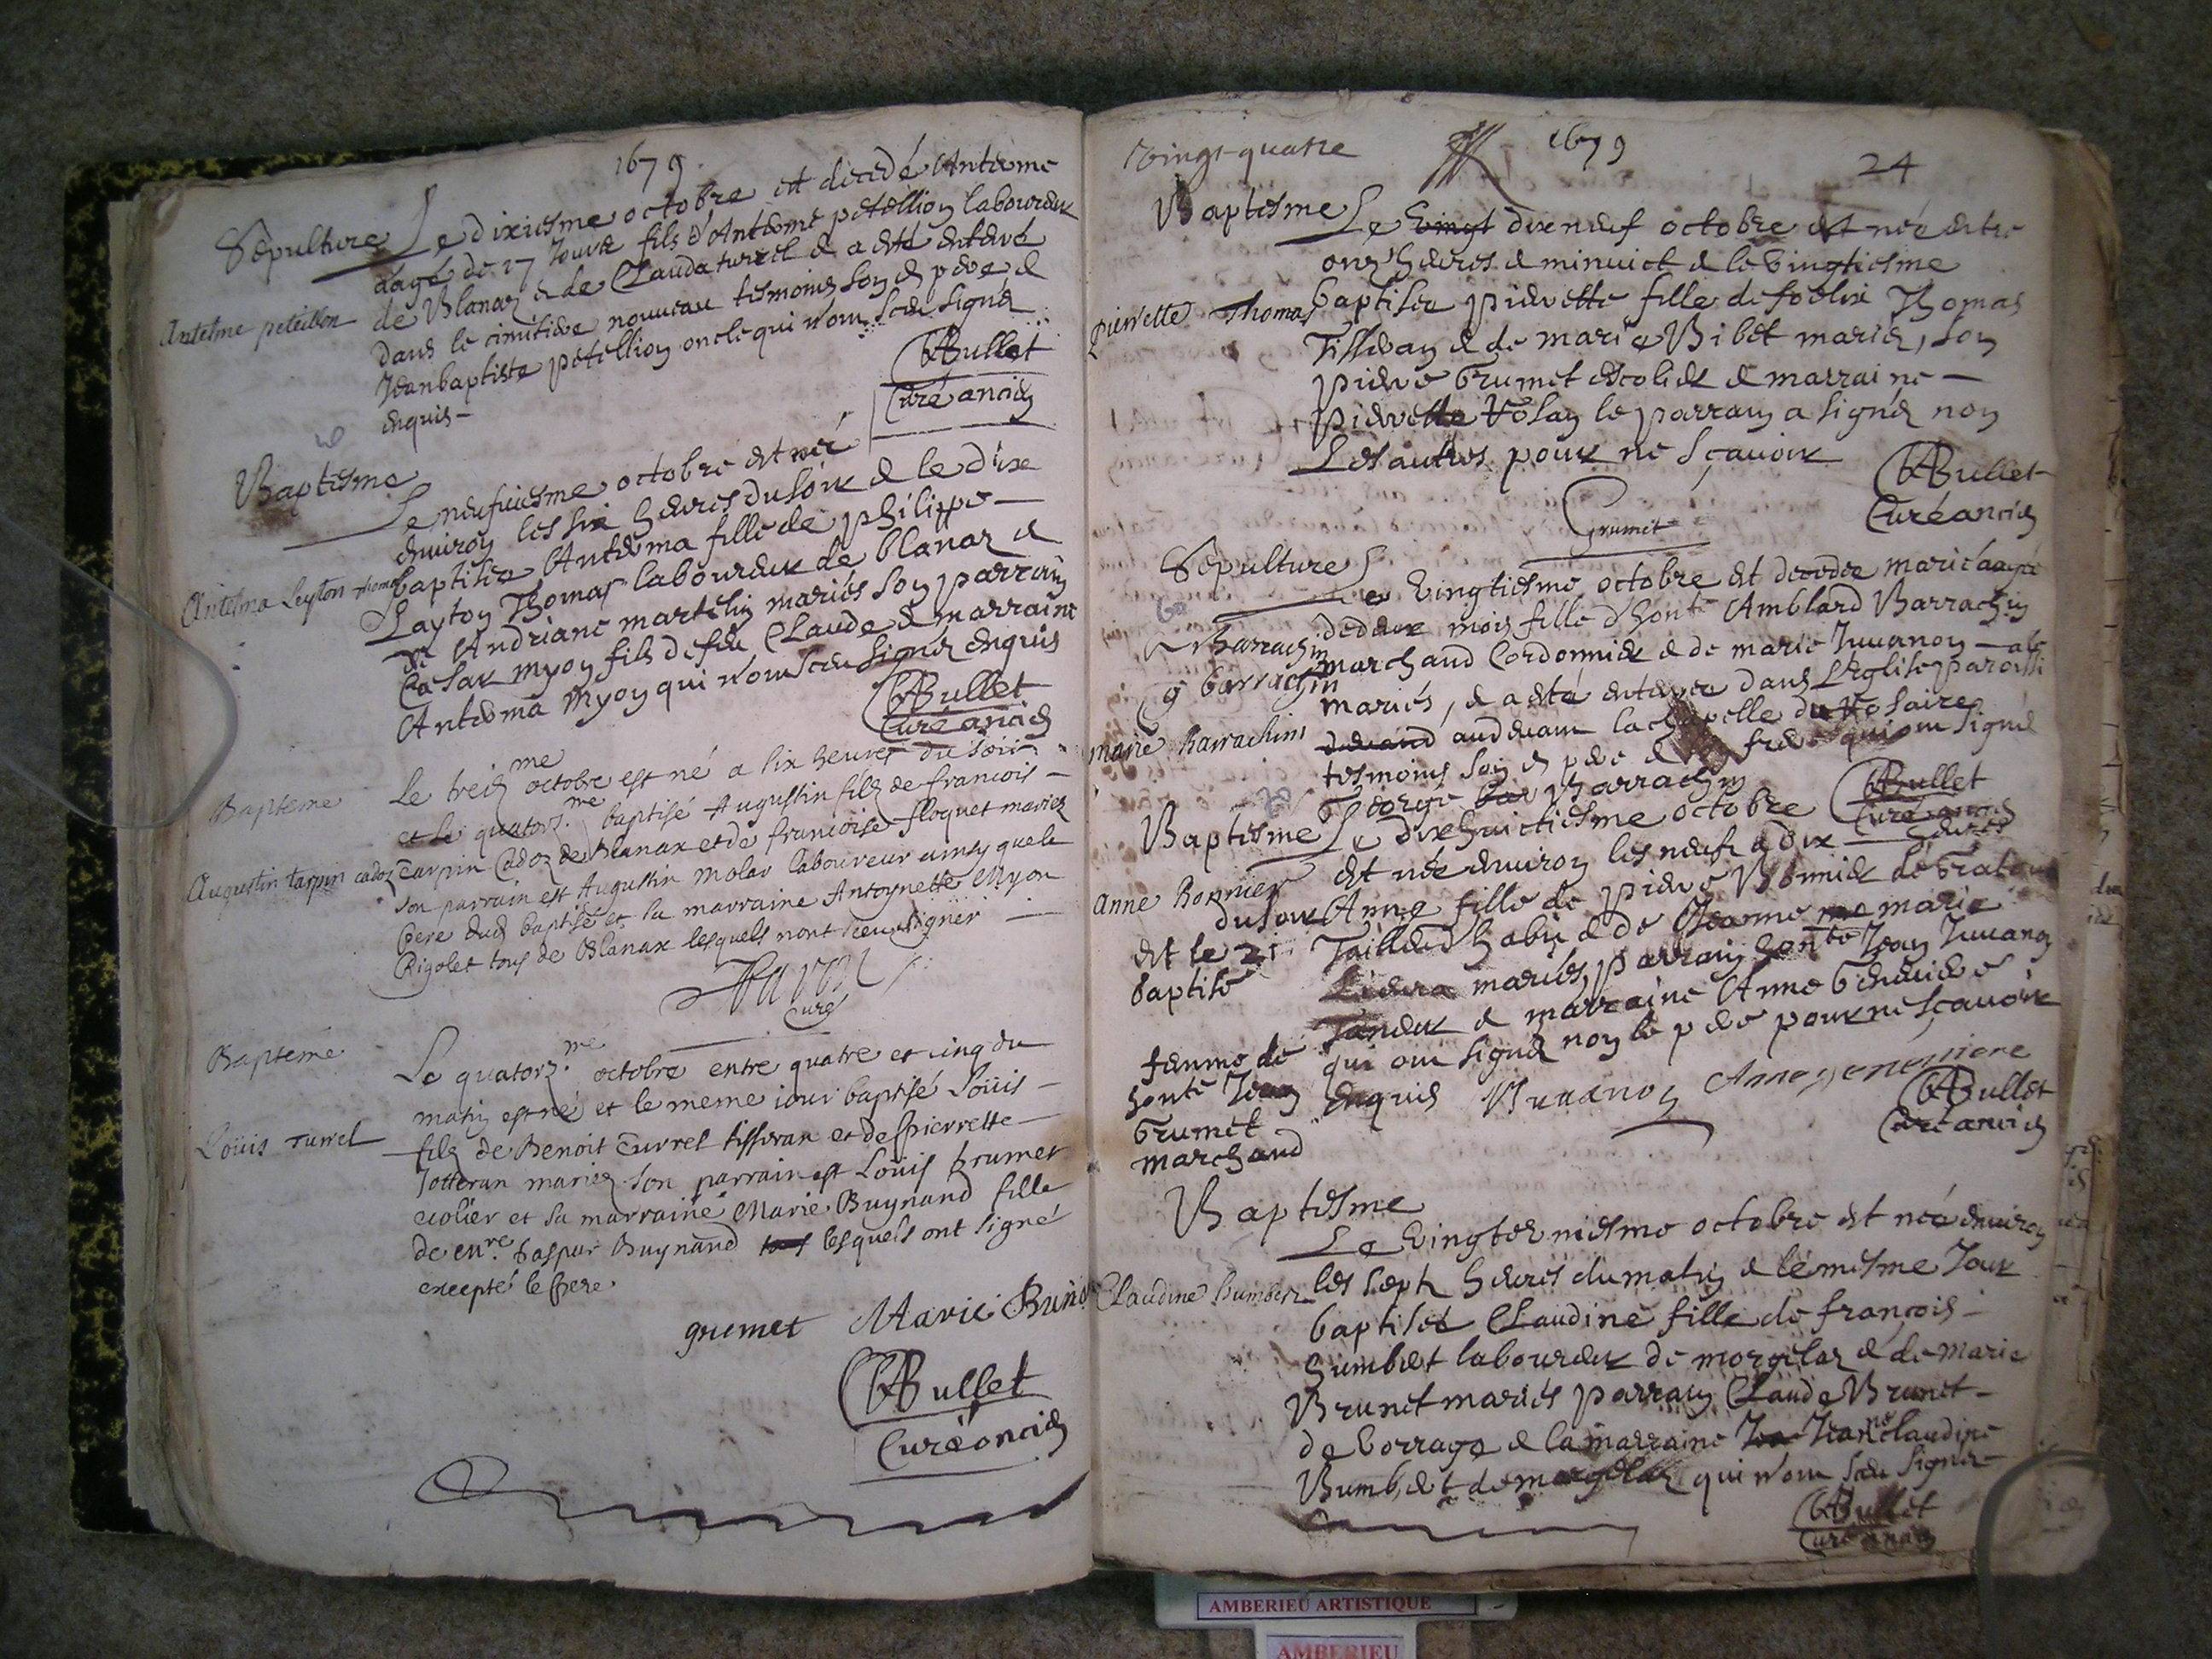 1679
Sepulture Le dixiesme octobre est decedé Antelme
aagé de 27 Jours fils d'Antelme petellion laboureur
Antelme peteillon de Blanaz & de Clauda turrel & a esté enterré
dans le cimitiere nouveau tesmoins son d pere &
Jeanbaptiste petellion oncle qui n'ont sceu signer
enquis -
Bullet
Curé ancien
Baptesme
Le neufuiesme octobre est née
environ les six heures du soir & le dixe
Antelma Leyton thomas baptisée Antelma fille de philippe -
Layton Thomas laboureur de blanaz &
de Andriane martelin mariés son parrain
Cesar myon fils de feu Claude & marraine
Antelma Myon qui n'ont sceu signer enquis
Bullet
Curé ancien
Bapteme Le treiz.me octobre est né a six heures du soir
et le quatorz.me baptisé Augustin filz de francois -
Augustin tarpin cadoz Tarpin Cadoz de Blanax et de francoise floquet mariez
son parrain est Augustin molar laboureur ainsy que le
pere dud baptisé et la marraine Antoynette Myon
Rigolet tous de Blanax lesquels nont sceu signer -
curé
Bapteme Le quatorz.me octobre entre quatre et cinq du
matin est né et le meme iour baptisé Loüis -
Loüis Turrel filz de Benoit Turrel tisseran et de Pierrette
Jotteran mariez son parrain est Loüis Grumet
ecolier et sa marraine Marie Buynand fille
de en.re Gaspar Buynand lesquels ont signé
excepté le Pere.
grumet Marie Buin
Bullet
Curé ancien
Vingt-quatre 1679 24
Baptesme Le vingt dix neuf octobre est née entre
onz heures & minuict & le vingtiesme
pierrette Thomas baptisée pierrette fille de foelix Thomas
Tisseran & de marie Bibet mariés, son
pierre Grumet escolier & marraine -
pierrette Rosay le parrain a signé non
Les autres pour ne sçavoir
Grumet
Bullet
Curé ancien
Sepulture Le vingtiesme octobre est decedée marie aagée
de deux mois fille d'honte Amblard Barrachin
Barrachin marchand Cordonnier & de marie Juuanon -
g barrachin mariés, & a esté enterrée dans L'Eglise paroissi
marie barrachin devand audevant la chapelle du Rosaire
tesmoins son d pere & frere qui ont signé
George bar Barrachin
Bullet
Curé ancien
Baptesme Le dixhuictiesme octobre
est née environ les neuf a dix heures
Anne Bonnier du soir Anne fille de pierre Bonnier
et le 21 Tailleur habit & de Jeanne marie
baptisé mariés, parrain honte Jean Juuanon
Taneur & marraine Anne Geneuiere
femme de qui ont signé non le pere pour ne sçavoir
honte Jean enquis
Grumet
marchand
Bullet
Curé ancien
Baptesme
Le vingt et uniesme octobre est née environ
Claudine humbert les sept heures du matin & le mesme Jour
baptisée Claudine fille de françois -
humbert laboureur de morgelaz & de marie
Brunet mariés parrain Claude Brunet -
de vorrage & la marraine Jea Jeanne claudine
Humbert de morgelaz qui n'ont sceu signer
Bullet
Curé ancien
AMBERIEU ARTISTIQUE
AMBERIEU